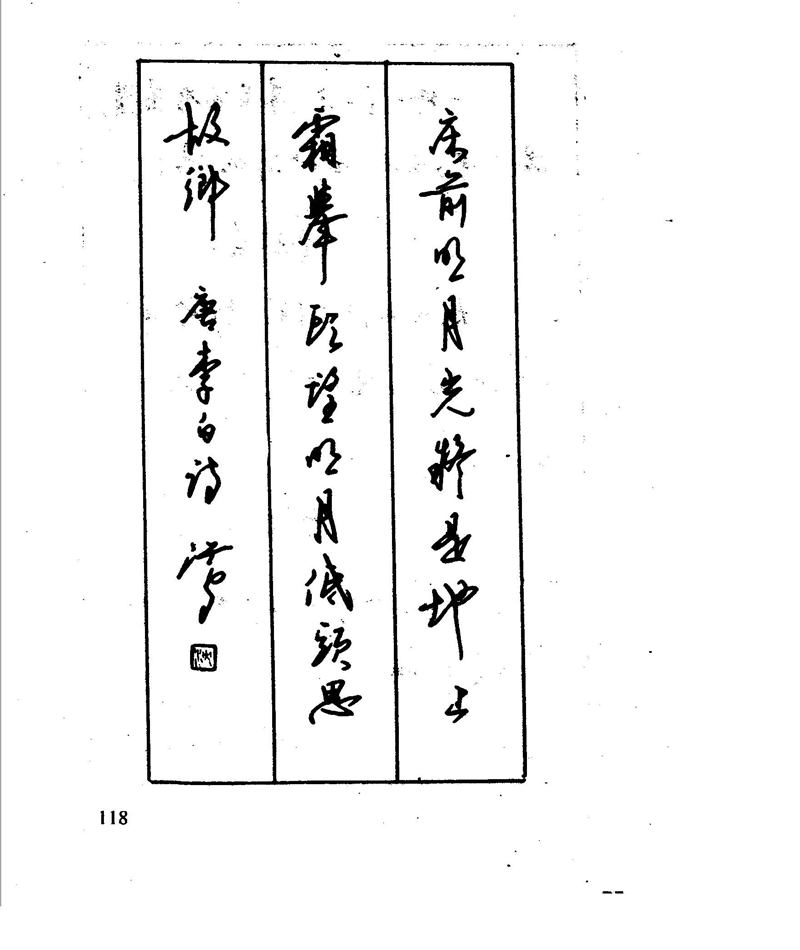 床前明月光疑是地上
霜舉頭望明月低頭思
故鄉 唐李白诗
118